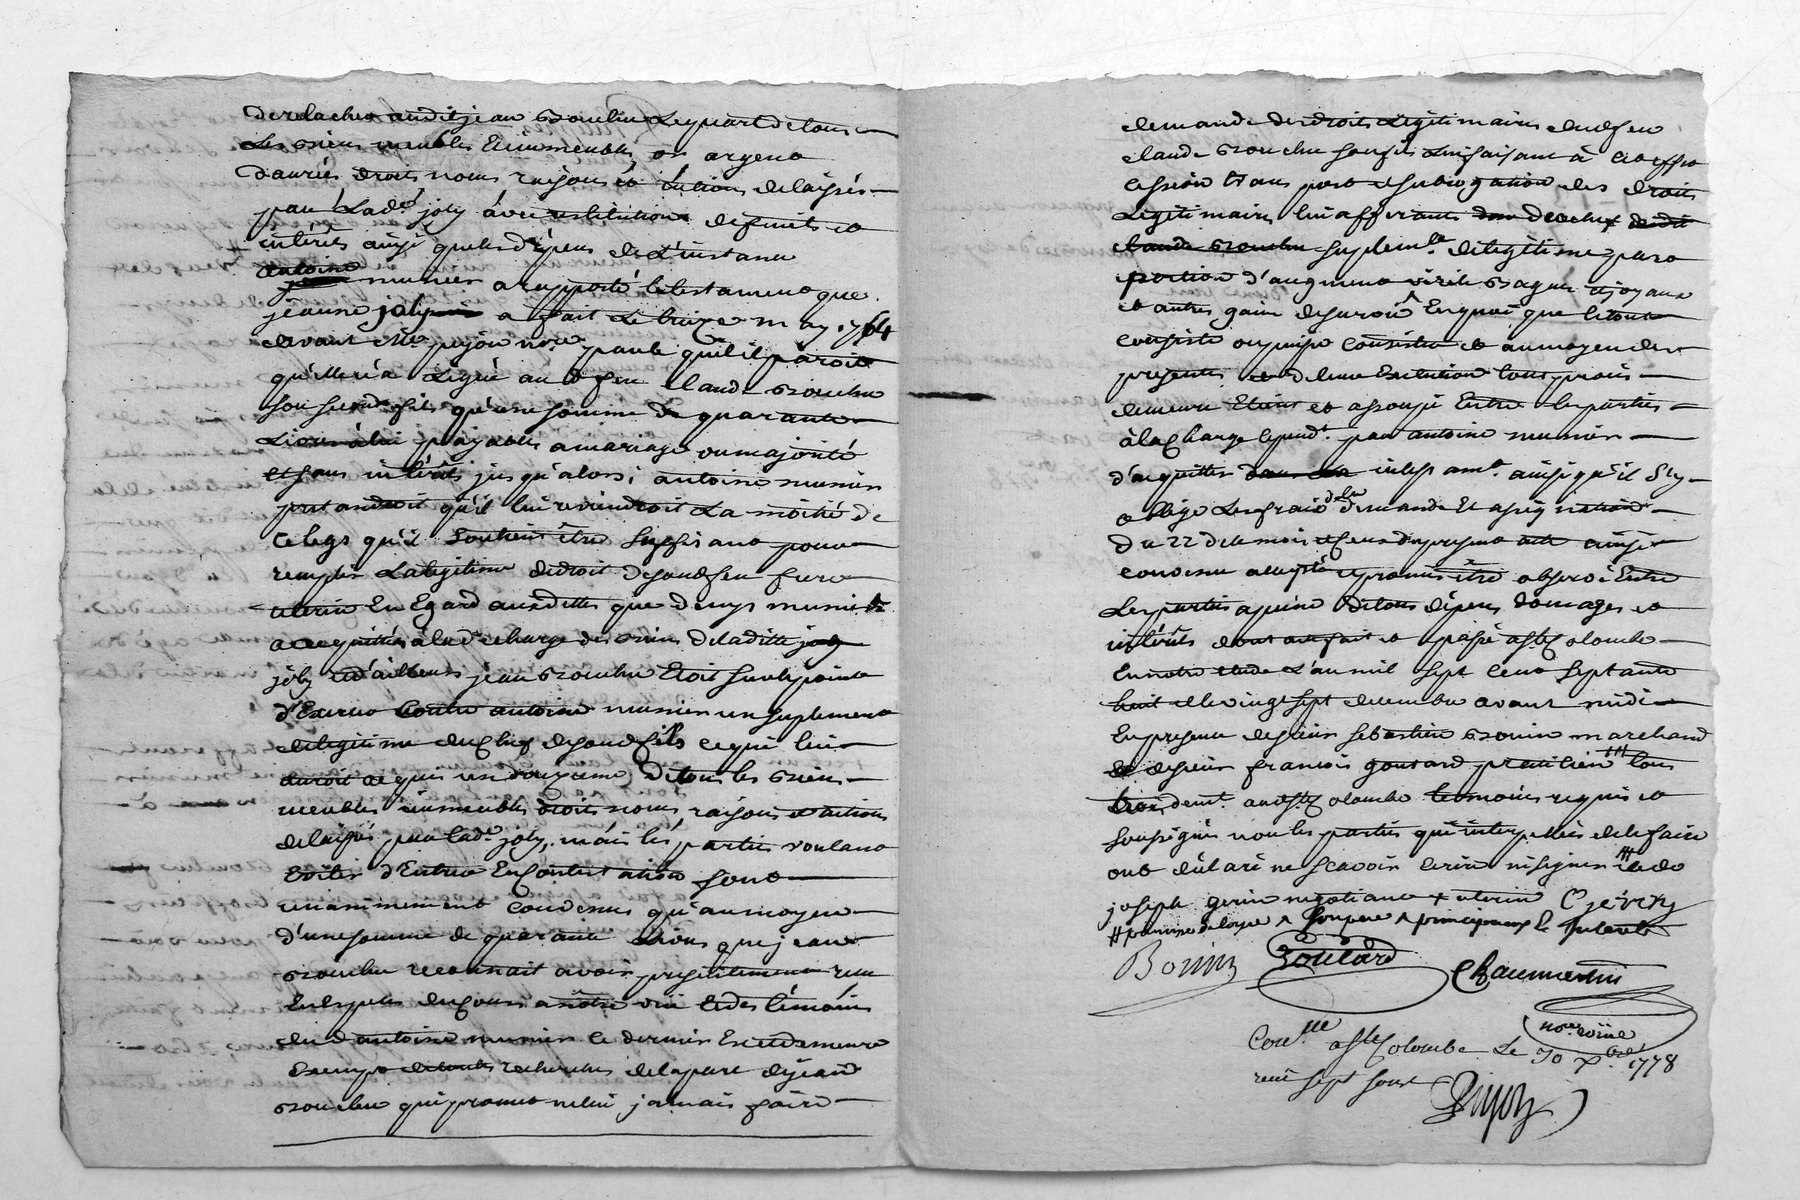 de relacher audit jean Brouchu le quart de tous
Les biens meubles Et immeubles, or argent
dautres droits noms raisons et actions delaissés
par Lade joly avec restitution de fruits et
intérêts ainsi que les dépens de L'instance
antoine munier a rapporté le testament que
jeanne joly a fait Le treize may 1764
devant Me pujon nore par le quel il paroit
qu'elle n'a Légué audt feu Claude
son second fils qu'une somme de quarante
payables a mariage ou majorité
et sans intérêts jusqu'alors; antoine munier
pretandoit qu'il lui reviendroit La moitié de
ce legs qu'il soutient être suffisant pour
remplir La legitime de droit de son dt feu frere
uterin En Egard aux dettes que denys munier
a acquittées à la decharge des biens de la ditte
joly et d'ailleurs jean Etoit sur le point
d'Exercer Contre antoine munier un suplement
de legitime du chef de son dt fils ce qui lui
auroit acquis un douzieme de tous les biens
meubles immeubles droits noms, raisons et actions
delaissés par lade joly, mais les parties voulant
Eviter d'Entrer En Contestation sont
unanimement Convenus qu'au moyen
d'une somme de quarante que jean
reconnait avoir presentement reçu
En Especes du Cours a notre vue et des témoins
dud antoine munier ce dernier En demeure
Exempt de toutes recherches de la part de jean
qui promet ne lui jamais faire
demande des droits Légitimaires dud feu
claude son fils Lui faisant à cet effet
Cession transport et subrogation des droits
Légitimaires lui afferants
suplemt de legitime par
portion d'augment virile bagues et joyaux
et autres gains de survie En quoi que le tout
consiste ou puisse Consister et au moyen des
presentes Et de leur Execution tous procès
demeure Eteint et assoupi Entre les parties
à la Charge cependt par antoine munier
d'acquitter incessamt ainsi qu'il s'y
oblige Les frais de la demande Et assignation
du 22 de ce mois et ceux du present acte ainsi
convenu accepté et promis être observé Entre
Les parties a peine de tous dépens domages et
intérêts dont acte fait et passé a Ste Colombe
En notre etude L'an mil sept cent septante
huit et le vingt sept decembre avant midi
En presence de sieur Sebastien Bonin marchand
de sieur francois goutard praticien tous
trois demt aud Ste Colombe temoins requis et
soussignés non les parties qui interpellées de le faire
ont déclaré ne scavoir ecrire ni signer
joseph gerin negotiant + uterin C gerin
Bonin Goutard Chaumartin
nore roial
Conlle a Ste Colombe Le 30 Xbre 1778
reçu sept sous
Pujon